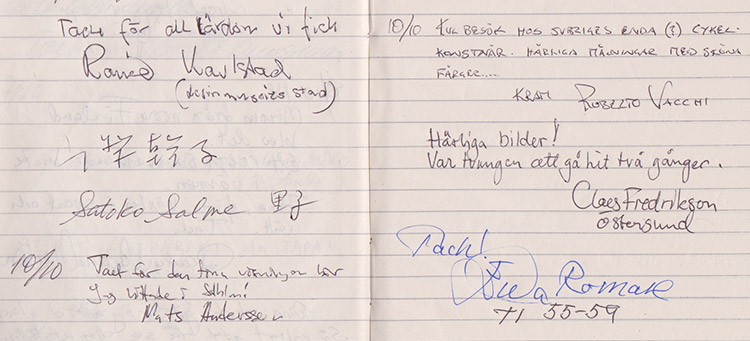 Tack för all lärdom vi fick
Karlstad
子
Satoko Salme 里子
10/10 Tack för den fina visningen här
Jag hittade i
Mats Andersson
10/10 KUL BESÖK HOS SVERIGES ENDA (?) CYKEL-
KONSTNÄR. HÄRLIGA MÅLNINGAR MED SKÖNA
FÄRGER....
KRAM ROBERTO VACCHI
Härliga bilder!
Var tvungen att gå hit två gånger.
Claes Fredrikson
Östersund
Tack!
Romare
71 55-59